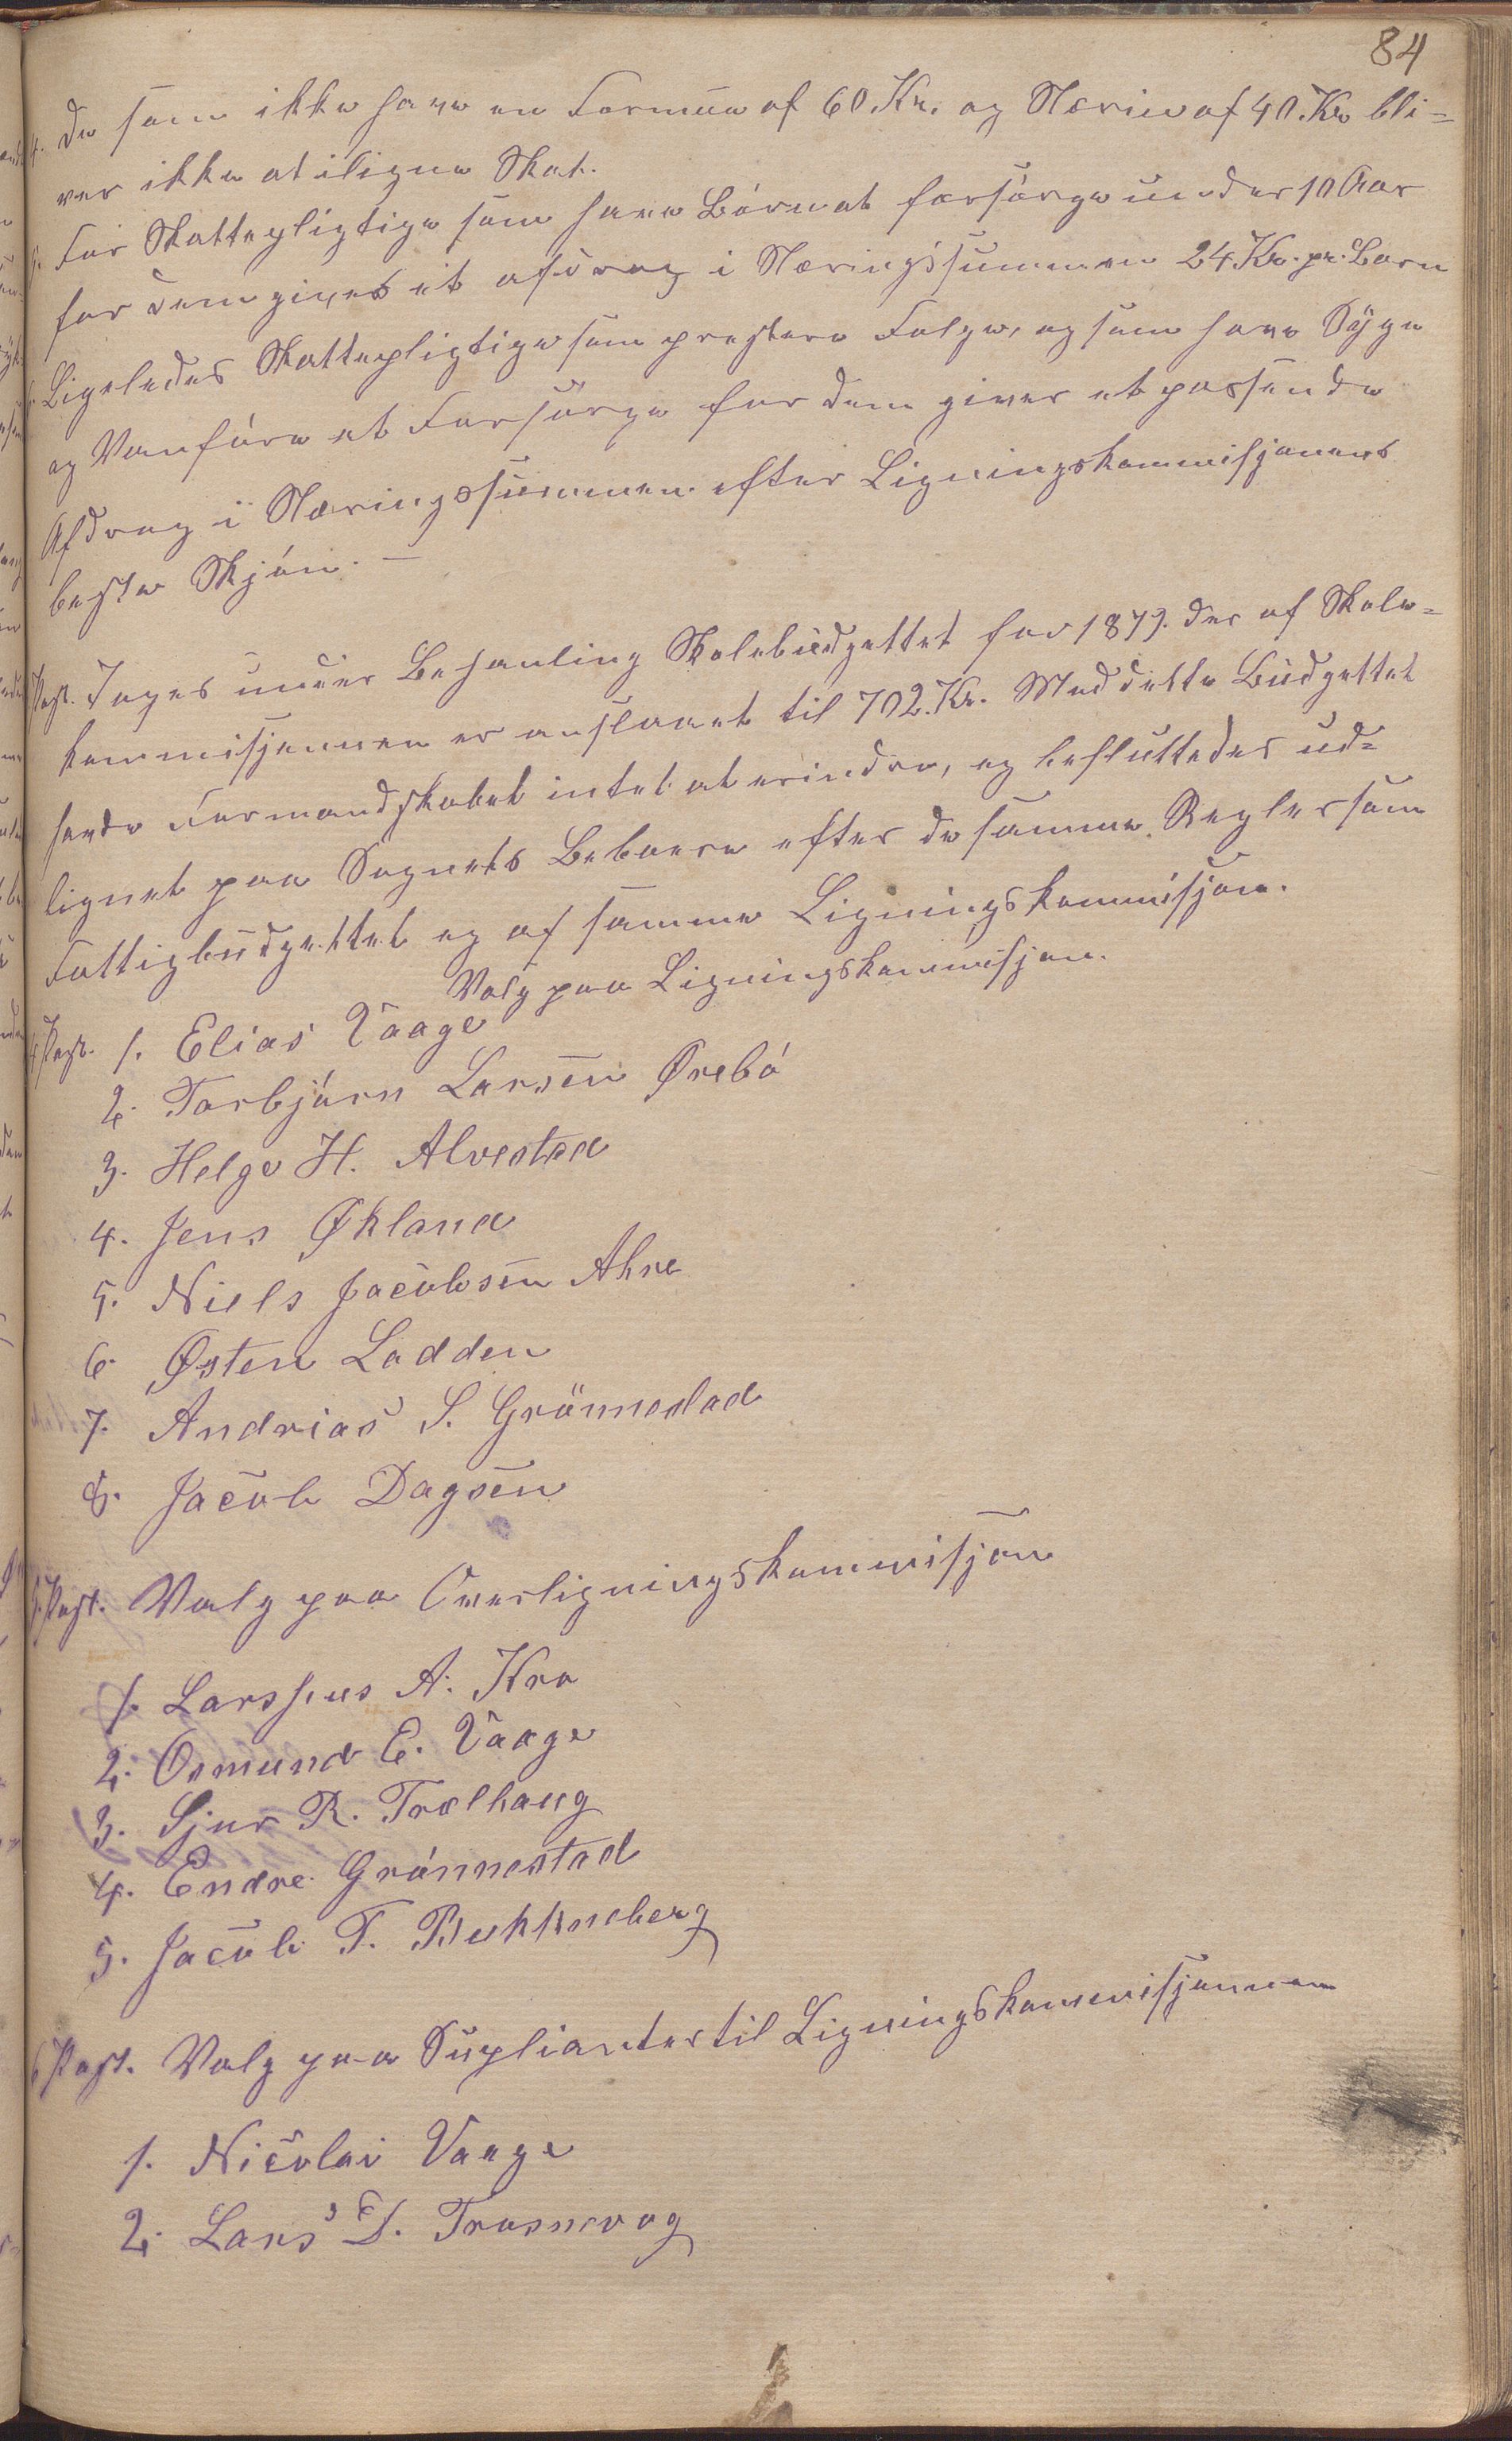 84
4. De som ikke have en Formue af 60. Kr. og Næring af 40. Kr bli=
ver ikke at iligne Skat.
5. For Skattepligtige som have Börn at forsörge under 10 Aar
for dem gives et afdrag i Næringssummen 24 Kr. pr. Barn
6. Ligeledes Skattepligtige som prestere Følge, og som have Syge
og Vanföre at Forsörge for dem gives et passende
Afdrag i Næringssummen efter Ligningskommisjonens
beste Skjön. —
Post. Toges under Behanling Skolebudgettet for 1879. der af Skole=
kommisjonnen er anslaaet til 702. Kr. Med dette Budgettet
havde Formandskabet intet at erindre, og besluttedes ud=
lignet paa Sognets Beboere efter de samme Regler som
Fattigbudgettet og af samme Ligningskommisjon.
Valg paa Ligningskommisjon.
4 Post. 1. Elias Vaage
2. Torbjörn Larsen Ørebö
3. Helge H. Alvestad
4. Jens Økland
5. Niels Jacobsen Ahre
6. Østen Ladden
7. Andrias S. Grönnestad
8. Jacob Dagsen
5. Post. Valg paa Overligningskommisjon
1. Larssius A. Kro
2. Osmund E. Vaage
3. Sjur R. Trælhaug
4. Endre Grönnestad
5. Jacob T. Bukkneberg
6 Post. Valg paa Suplianter til Ligningskommisjonnen
1. Nicolai Vaage
2. Lars D. Trosnavag